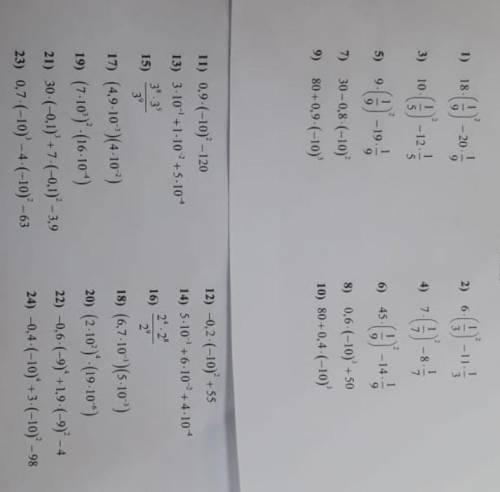 1) 18·(1/9)² − 20·1/9 2) 6·(1/3)² − 11·1/3
3) 10·(1/5)² − 12·1/5 4) 7·(1/7)² − 8·1/7
5) 9·(1/9)² − 19·1/9 6) 45·(1/9)² − 14·1/9
7) 30 − 0,8·(−10)² 8) 0,6·(−10)³ + 50
9) 80 + 0,9·(−10)³ 10) 80 + 0,4·(−10)³
11) 0,9·(−10)² − 120 12) −0,2·(−10)² + 55
13) 3·10⁻¹ + 1·10⁻² + 5·10⁻⁴ 14) 5·10⁻¹ + 6·10⁻² + 4·10⁻⁴
15) 3⁸·3⁵/3⁹ 16) 2⁴·2⁸/2⁹
17) (4,9·10⁻³)(4·10⁻²) 18) (6,7·10⁻³)(5·10⁻³)
19) (7·10³)²·(16·10⁻⁴) 20) (2·10²)⁴·(19·10⁻⁶)
21) 30·(−0,1)³ + 7·(−0,1)² − 3,9 22) −0,6·(−9)⁴ + 1,9·(−9)² − 4
23) 0,7·(−10)³ − 4·(−10)² − 63 24) −0,4·(−10)⁴ + 3·(−10)² − 98